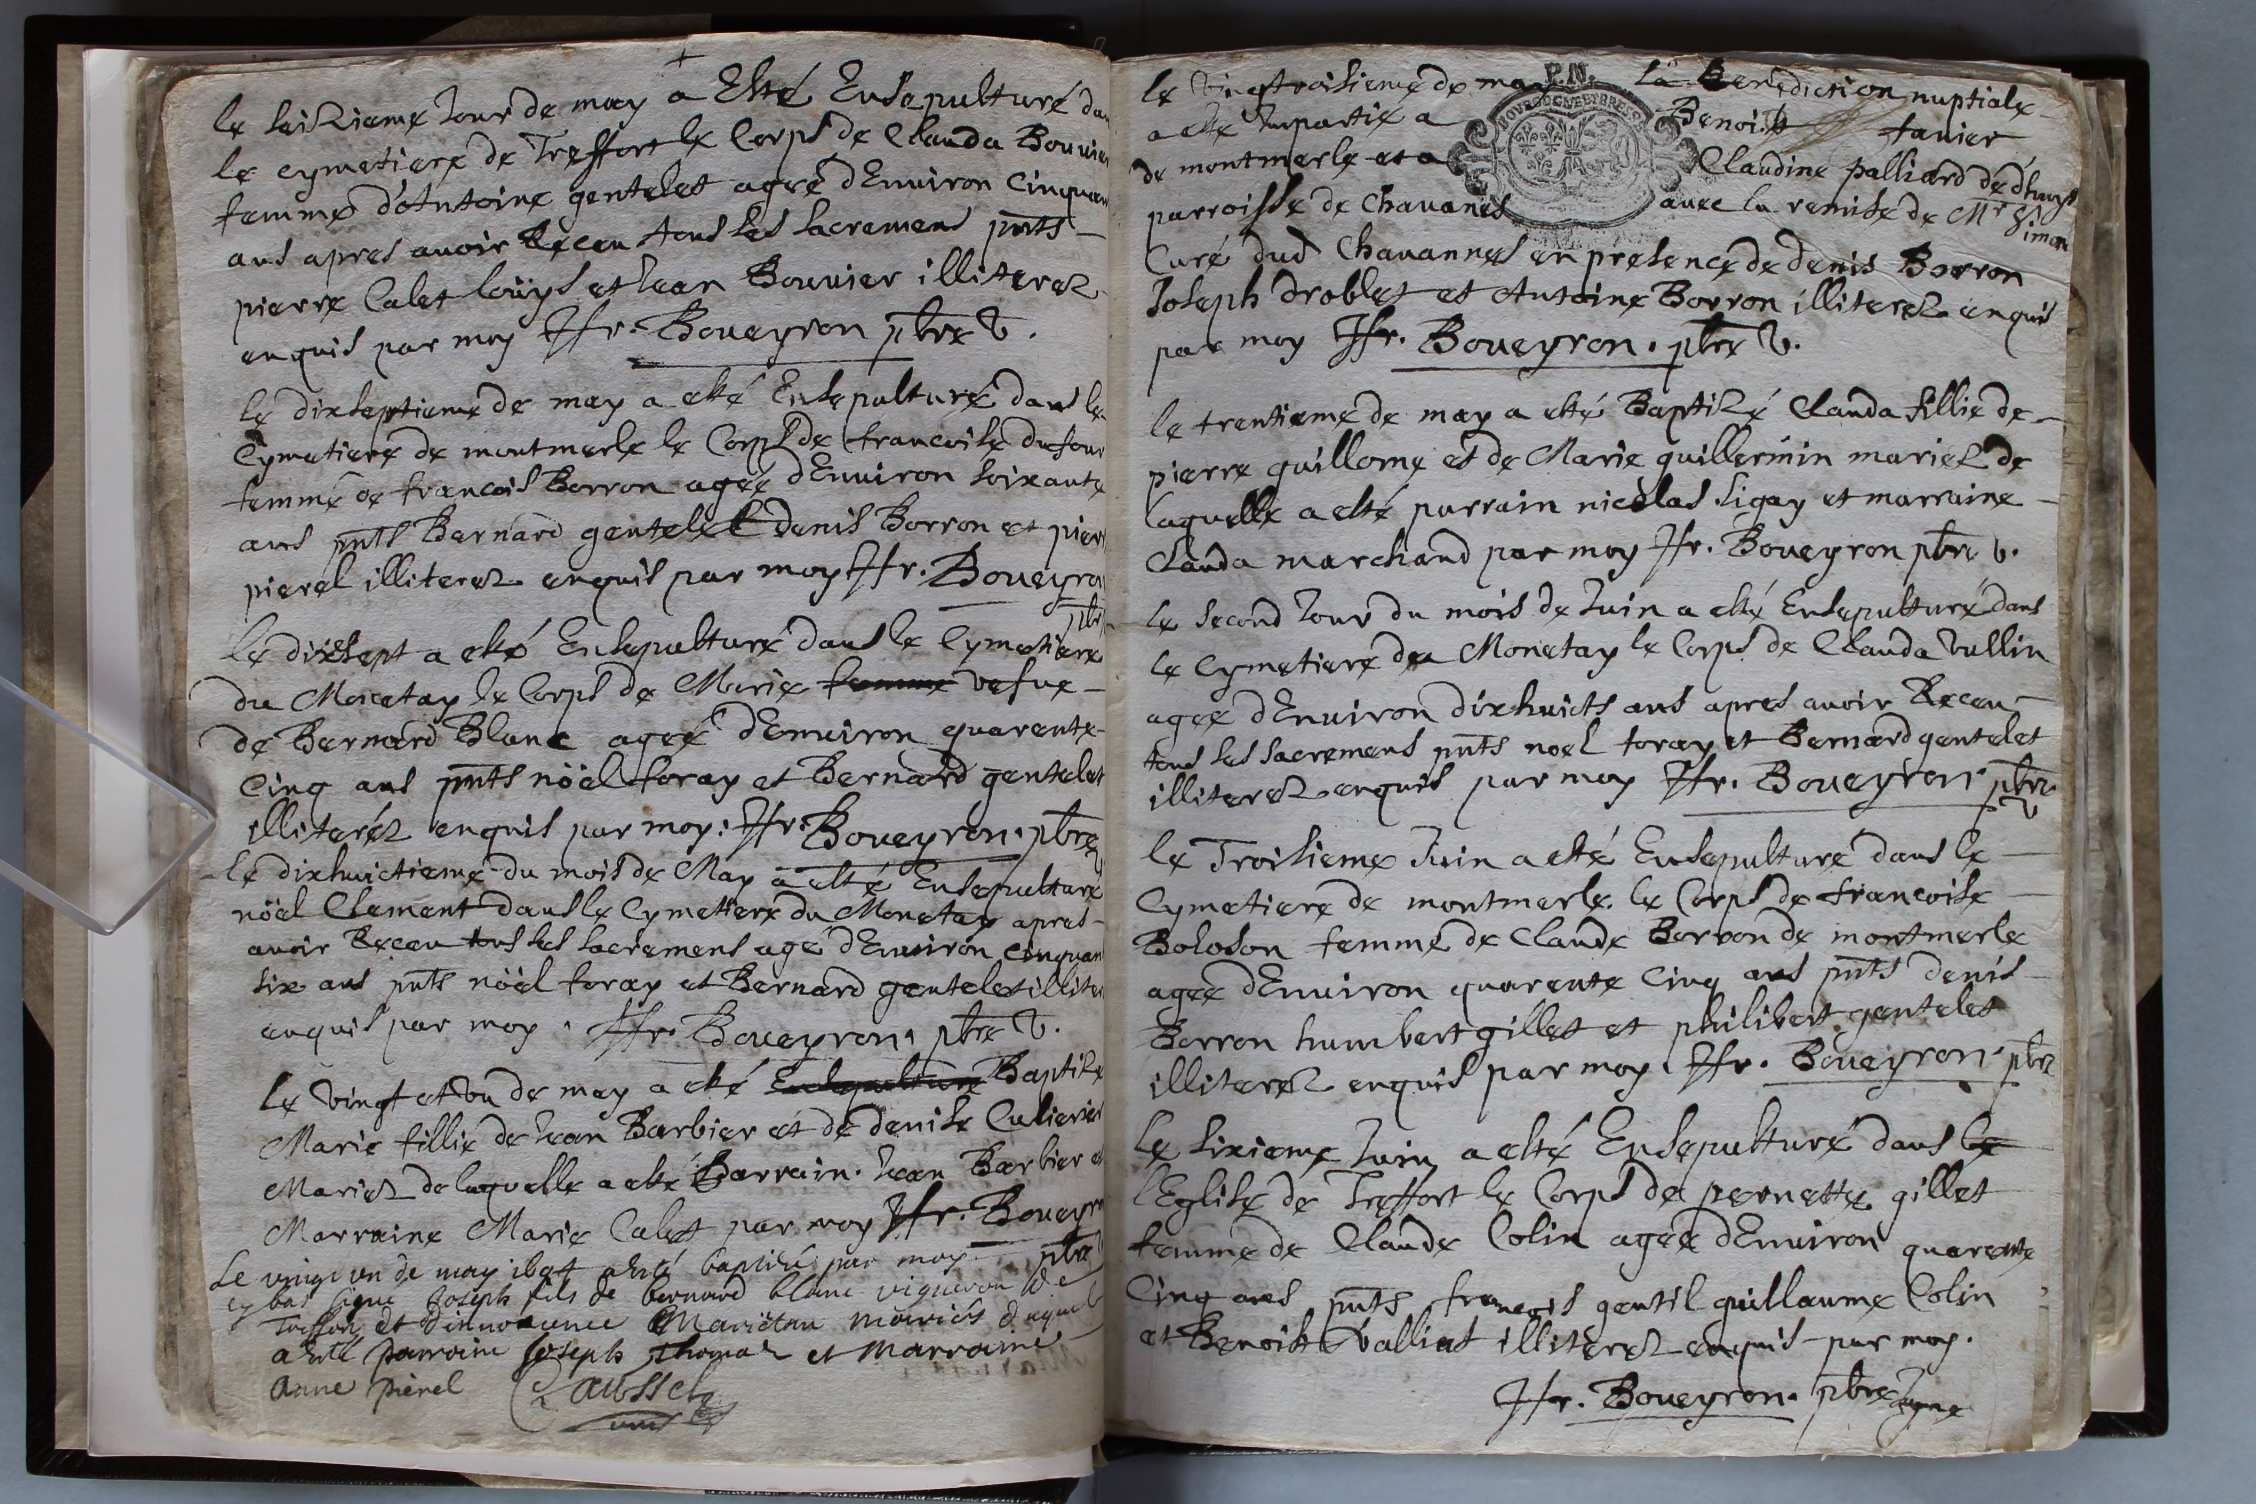 le seizieme Jour de may a Esté Ensepulturé dan
le cymetiere de Treffort le Corps de Clauda Bouvier
femme d'Antoine gentelet agee d'Environ Cinquan
ans apres avoir Receu tous les sacremens pnts
pierre Calet loüys et Jean Bouvier illiterez
enquis par moy Jfr. Boueyron ptre V.
le dixseptieme de may a esté Ensepulturé dans le
Cymetiere de montmerle le Corps de francoise dufour
femme de francois Borron agée d'Environ soixante
ans pnts Bernard gentelet denis Borron et pier
pierel illiterez enquis par moy Jfr. Boueyron
ptre
le dixsept a esté Ensepulturé dans le Cymetiere
du Monetay le Corps de Marie femme vefue
de Bernard Blanc agée d'Environ quarente
Cinq ans pnts nöel foray et Bernard gentelet
illiteréz enquis par moy. Jfr. Boueyron. ptre
le dixhuictieme du mois de May a esté Ensepulturé
nöel Clement dans le Cymettere du Monetay apres
avoir Receu tous les sacremens agé d'Environ Cinquan
six ans pnts nöel foray et Bernard gentelet illiter
enquis par moy. Jfr. Boueyron. ptre V.
le vingt et vn de may a esté Ensepulture Baptizé
Marie fillie de Jean Barbier et de denise Culierier
Mariez de laquelle a esté Parrain. Jean Barbier et
Marraine Marie Calet par moy Jfr. Boueyr
ptre
Le vingt un de may a esté baptisé par moy
cy bas signé Joseph fils de bernard blanc vigneron de
Treffort et d'innocence Mariés
a esté parrain Joseph Thomas et Marraine
Anne pierel
P.N.
BOVRGOGNE ET BRESSE
le vingttroisieme de may la Benediction nuptiale
a esté Impartie a Benoist fauier
de montmerle et a Claudine palliard de
parroisse de Chauanes avec la remise de Mr Simon
Curé dud Chauannes en presence de denis Borron
Joseph droblet et Antoine Borron illiterez enquis
par moy Jfr. Boueyron. ptre V.
le trentieme de may a esté Baptizé Clauda fillie de
pierre guillome et de Marie guillermin mariez de
laquelle a esté parrain nicolas sigay et marraine
Clauda marchand par moy Jfr. Boueyron ptre V.
le second Jour du mois de Juin a esté Ensepulturé dans
le Cymetiere du Monetay le Corps de Clauda Vullin
agee d'Environ dixhuicts ans apres avoir Receu
tous les sacremens pnts noel foray et Bernard gentelet
illiterez enquis par moy Jfr. Boueyron. ptre
V
le Troisieme Juin a esté Ensepulturé dans le
Cymetiere de montmerle le Corps de francoise
Boloson femme de Claude Borron de montmerle
agee d'Environ quarente Cinq ans pnts denis
Borron humbert gillet et philibert gentelet
illiterez enquis par moy. Jfr. Boueyron. ptre
le sixieme Juin a esté Ensepulturé dans le
l'Eglise de Treffort le Corps de pernette gillet
femme de Claude Colin agee d'Environ quarente
Cinq ans pnts francois gentil guillaume Colin
et Benoist Valliat illiterez enquis par moy.
Jfr. Boueyron. ptre